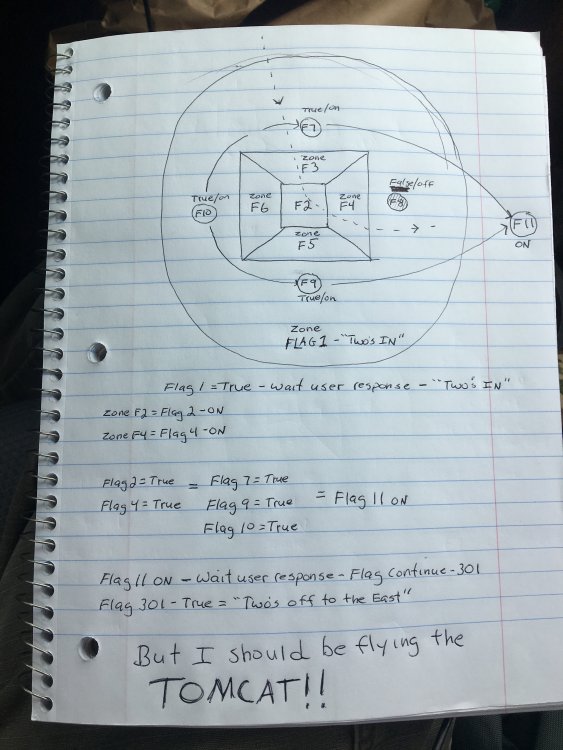 True/on
F7
zone
F3
True/on
F10
zone
F6
F2
zone
F4
False/off
F8
F11
ON
zone
F5
F9
True/on
zone
FLAG 1 - "Two's IN"
Flag 1 = True - wait user response - "Two's IN"
zone F2 = Flag 2 - ON
zone F4 = Flag 4 - ON
Flag 2 = True = Flag 7 = True
Flag 4 = True Flag 9 = True = Flag 11 ON
Flag 10 = True
Flag 11 ON - Wait user response - Flag Continue - 301
Flag 301 - True = "Two's off to the East"
But I should be flying the
TOMCAT!!